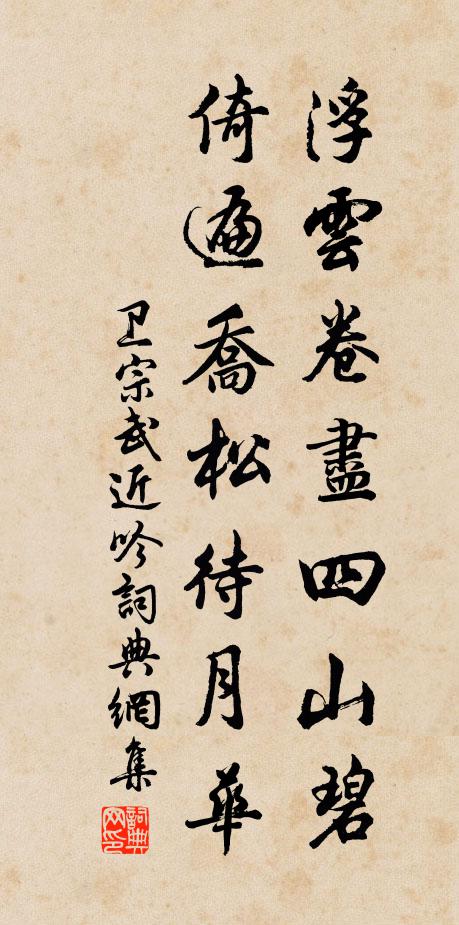 浮雲卷盡四山碧
倚遍喬松待月華
卫宗武近吟詞典網集
詞典网印